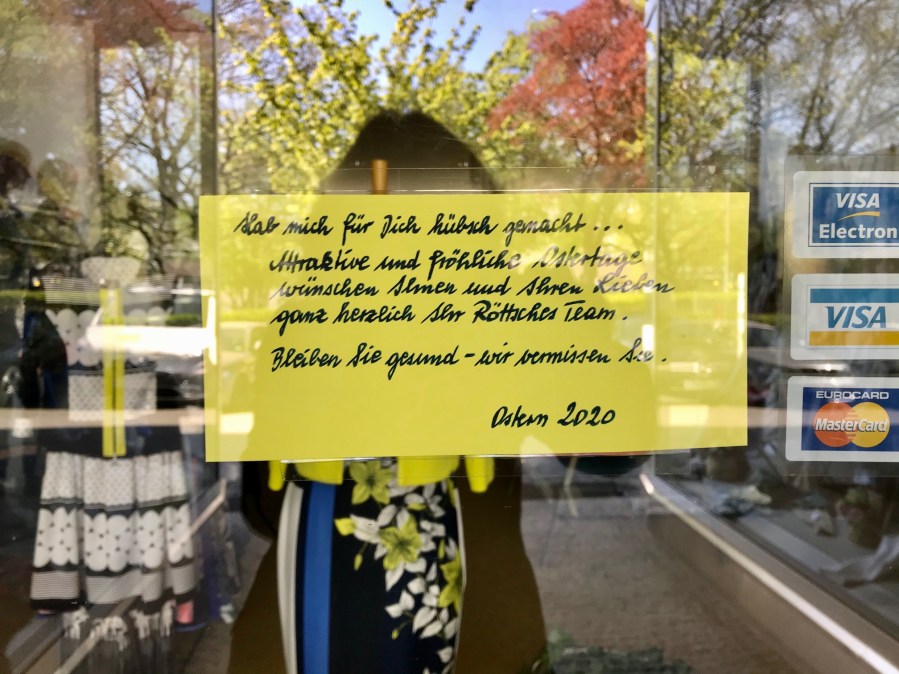 Hab mich für Dich hübsch gemacht...
Attraktive und fröhliche Ostertage
wünschen Ihnen und Ihren Lieben
ganz herzlich Ihr Röttsches Team.
Bleiben Sie gesund - wir vermissen Sie.
Ostern 2020
VISA
Electron
VISA
EUROCARD
MasterCard